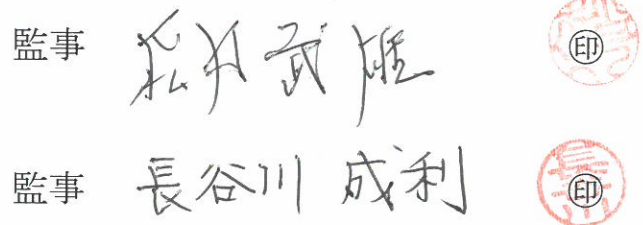 監事 松井武雄 印
監事 長谷川 成利 印